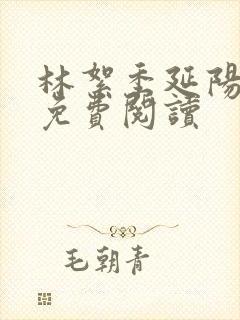 林絮季延陽
免費閱讀
毛朝青